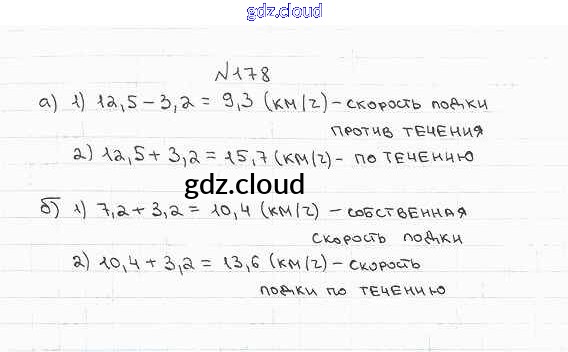 gdz.cloud
№178
а) 1) 12,5 - 3,2 = 9,3 (км/ч) - скорость лодки
против течения
2) 12,5 + 3,2 = 15,7 (км/ч) - по течению
gdz.cloud
б) 1) 7,2 + 3,2 = 10,4 (км/ч) - собственная
скорость лодки
2) 10,4 + 3,2 = 13,6 (км/ч) - скорость
лодки по течению